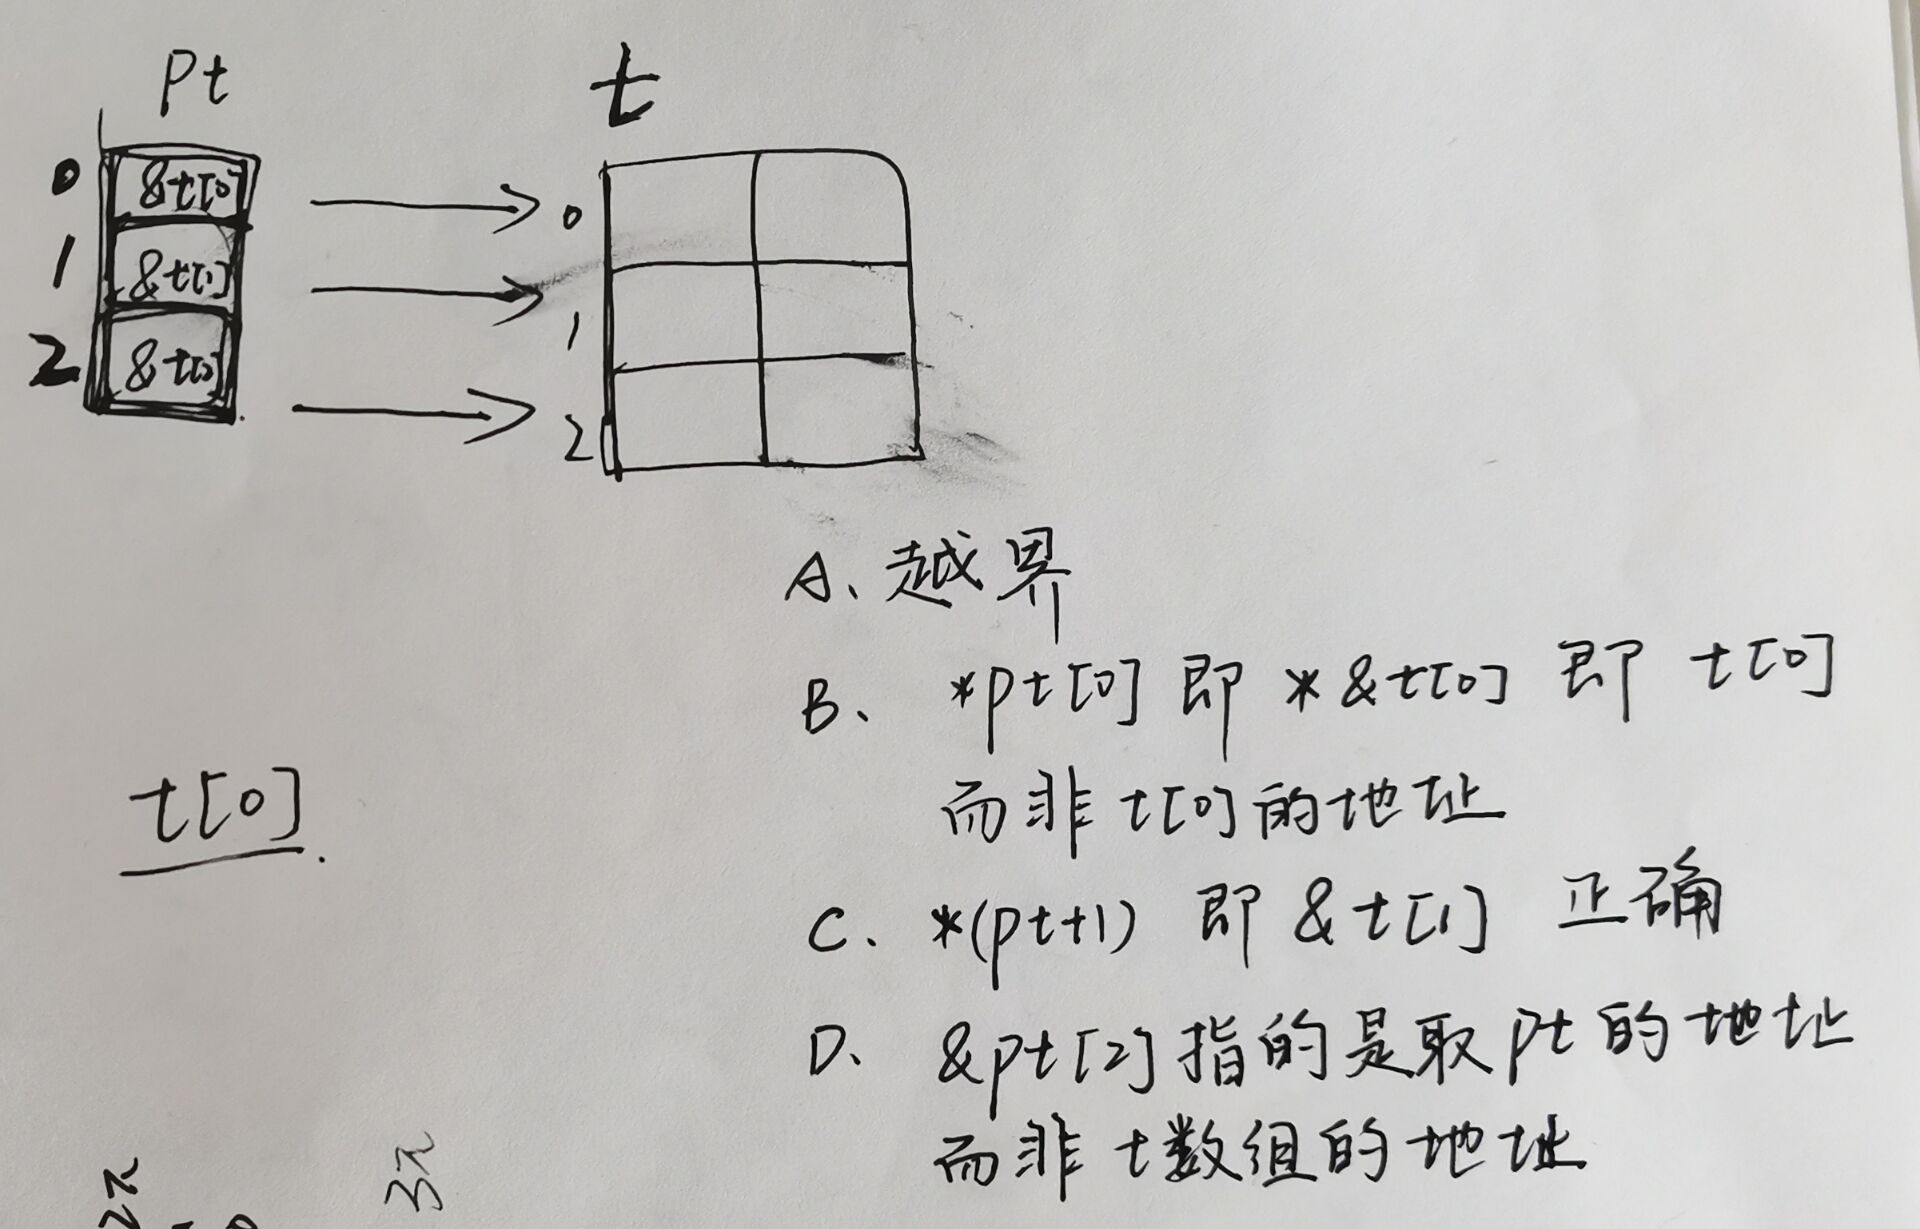 Pt
t
0 &t[0]
1 &t[1]
2
0
1
2
A、越界
B、*pt[0] 即 *&t[0] 即 t[0]
而非 t[0] 的地址
t[0].
C、*(pt+1) 即 &t[1] 正确
D、&pt[2] 指的是取 pt 的地址
而非 t数组的地址
3π
2π